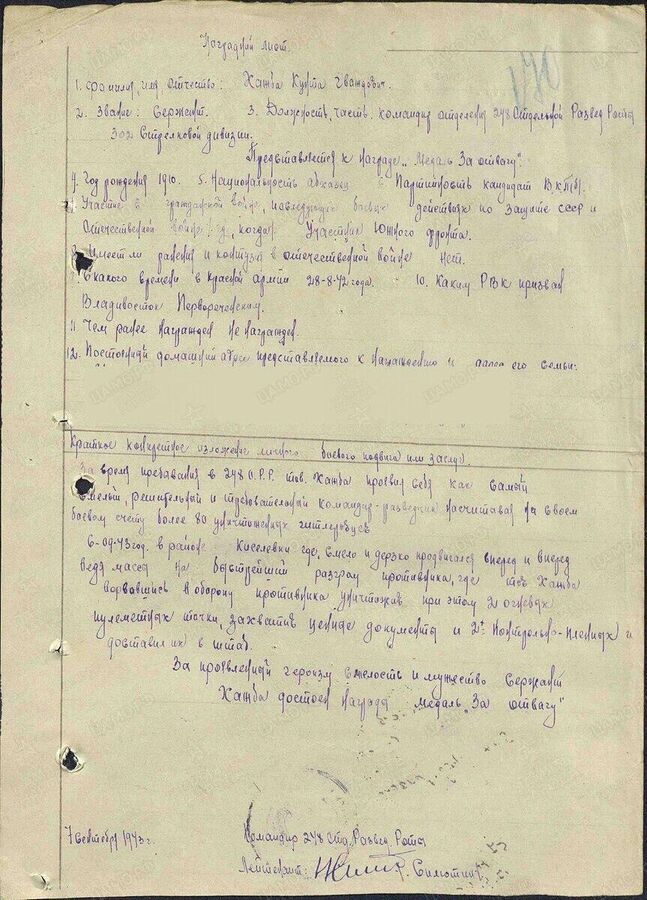 Наградной лист.
170
1. Фамилия, имя отчество: Хашба Кукта Гвандович.
2. Звание: Сержант. 3. Должность, часть, командир отделения 248 Отдельной Развед Рота
302 Стрелковой дивизии.
Представляется к награде „Медаль За отвагу".
4. Год рождения 1910. 5. Национальность абхазец 6 Партийность кандидат ВКП(б).
Участие в гражданской войне, последующих боевых действиях по защите СССР и
Отечественной войне где, когда Участник Южного фронта.
8. Имеет ли ранения и контузии в отечественной войне Нет.
С какого времени в Красной армии 28-8-42 года. 10. Каким РВК призван
Владивосток Первореченским.
11. Чем ранее награжден Не награжден.
12. Постоянный домашний адрес представляемого к награждению и адрес его семьи:
Краткое конкретное изложение личного боевого подвига или заслуг.
За время пребывания в 248 О.Р.Р. тов. Хашба проявил себя как самый
смелый, решительный и требовательный командир-разведчик насчитывая на своем
боевом счету более 80 уничтоженых гитлеровцев
6-09-43 год. в районе Киселевки где, смело и дерзко продвигался вперед и вперед
ведя массы на быстрейший разгром противника, где тов Хашба
ворвавшись в оборону противника уничтожив при этом 2 огневых
пулеметных точки, захватив ценные документы и 2х пленных и
доставил их в штаб.
За проявленный героизм смелость и мужество Сержант
Хашба достоен награда медаль „За отвагу"
7 сентября 1943 г.
Командир 248 отд. Развед. Рота
Лейтенант: